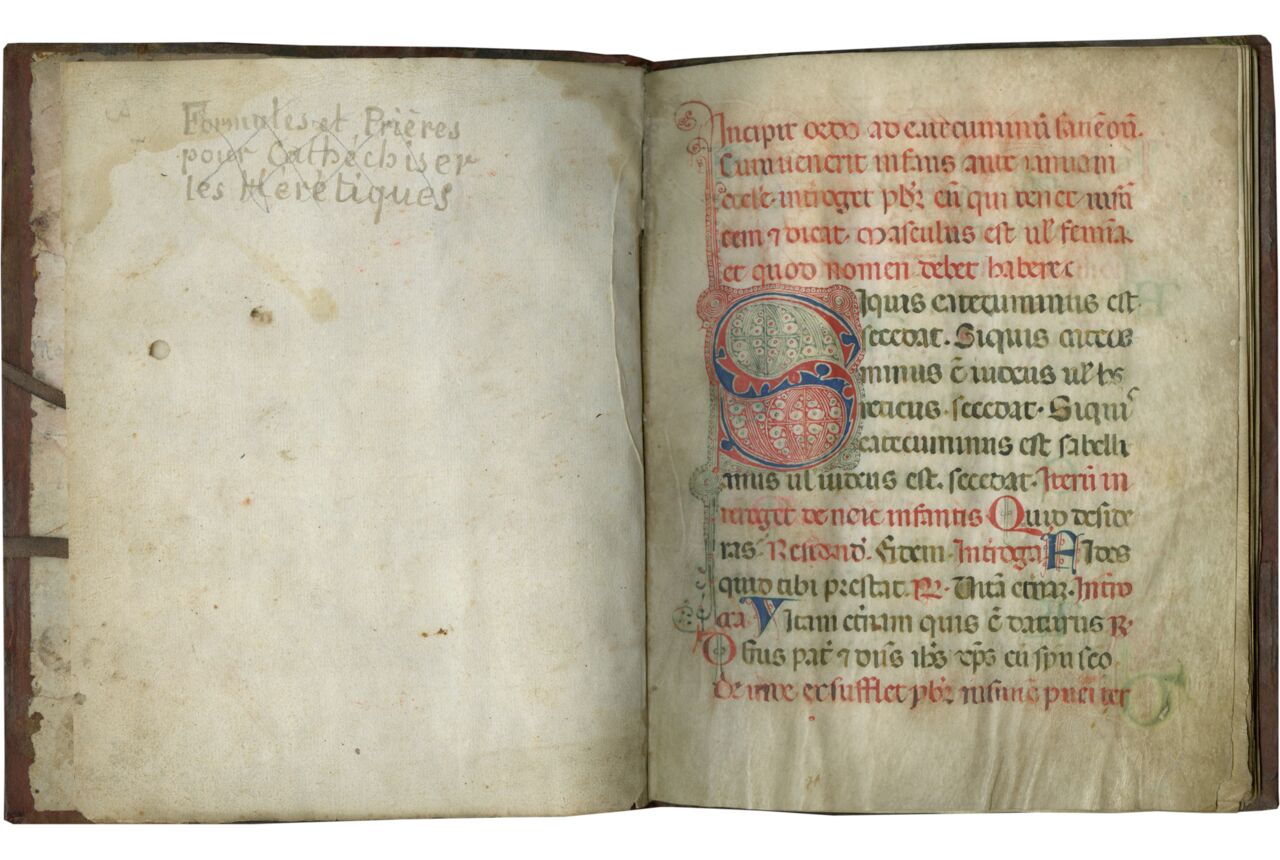 Formules et Prières
pour Cathéchiser
les Hérétiques
Incipit ordo ad catecuminū faciendū.
Cum venerit infans ante ianuam
eccłe. intrroget pbr̄ eū qui tenet infā
tem ⁊ dicat. Masculus est uł femīa.
et quod nomen debet habere.
Siquis catecuminus est
seccdat. Siquis catecu
minus ē iudeus uł he
reticus. seccdat. Siquis
catecuminus est sabelli
anus uł iudeus est. seccdat. Iterū in
terroget de noīe infantis Quid deside
ras. Respondꝫ. Fidem. Introga Fides
quid tibi prestat. R. Vitā etnaꝫ. Intro
ga. Vitam etnam quis ē daturus R.
Dſius pat̄ ⁊ dn̄s ih̄s xp̄s cū spu sco
De inde exsufflet pbr̄ in pueri ter